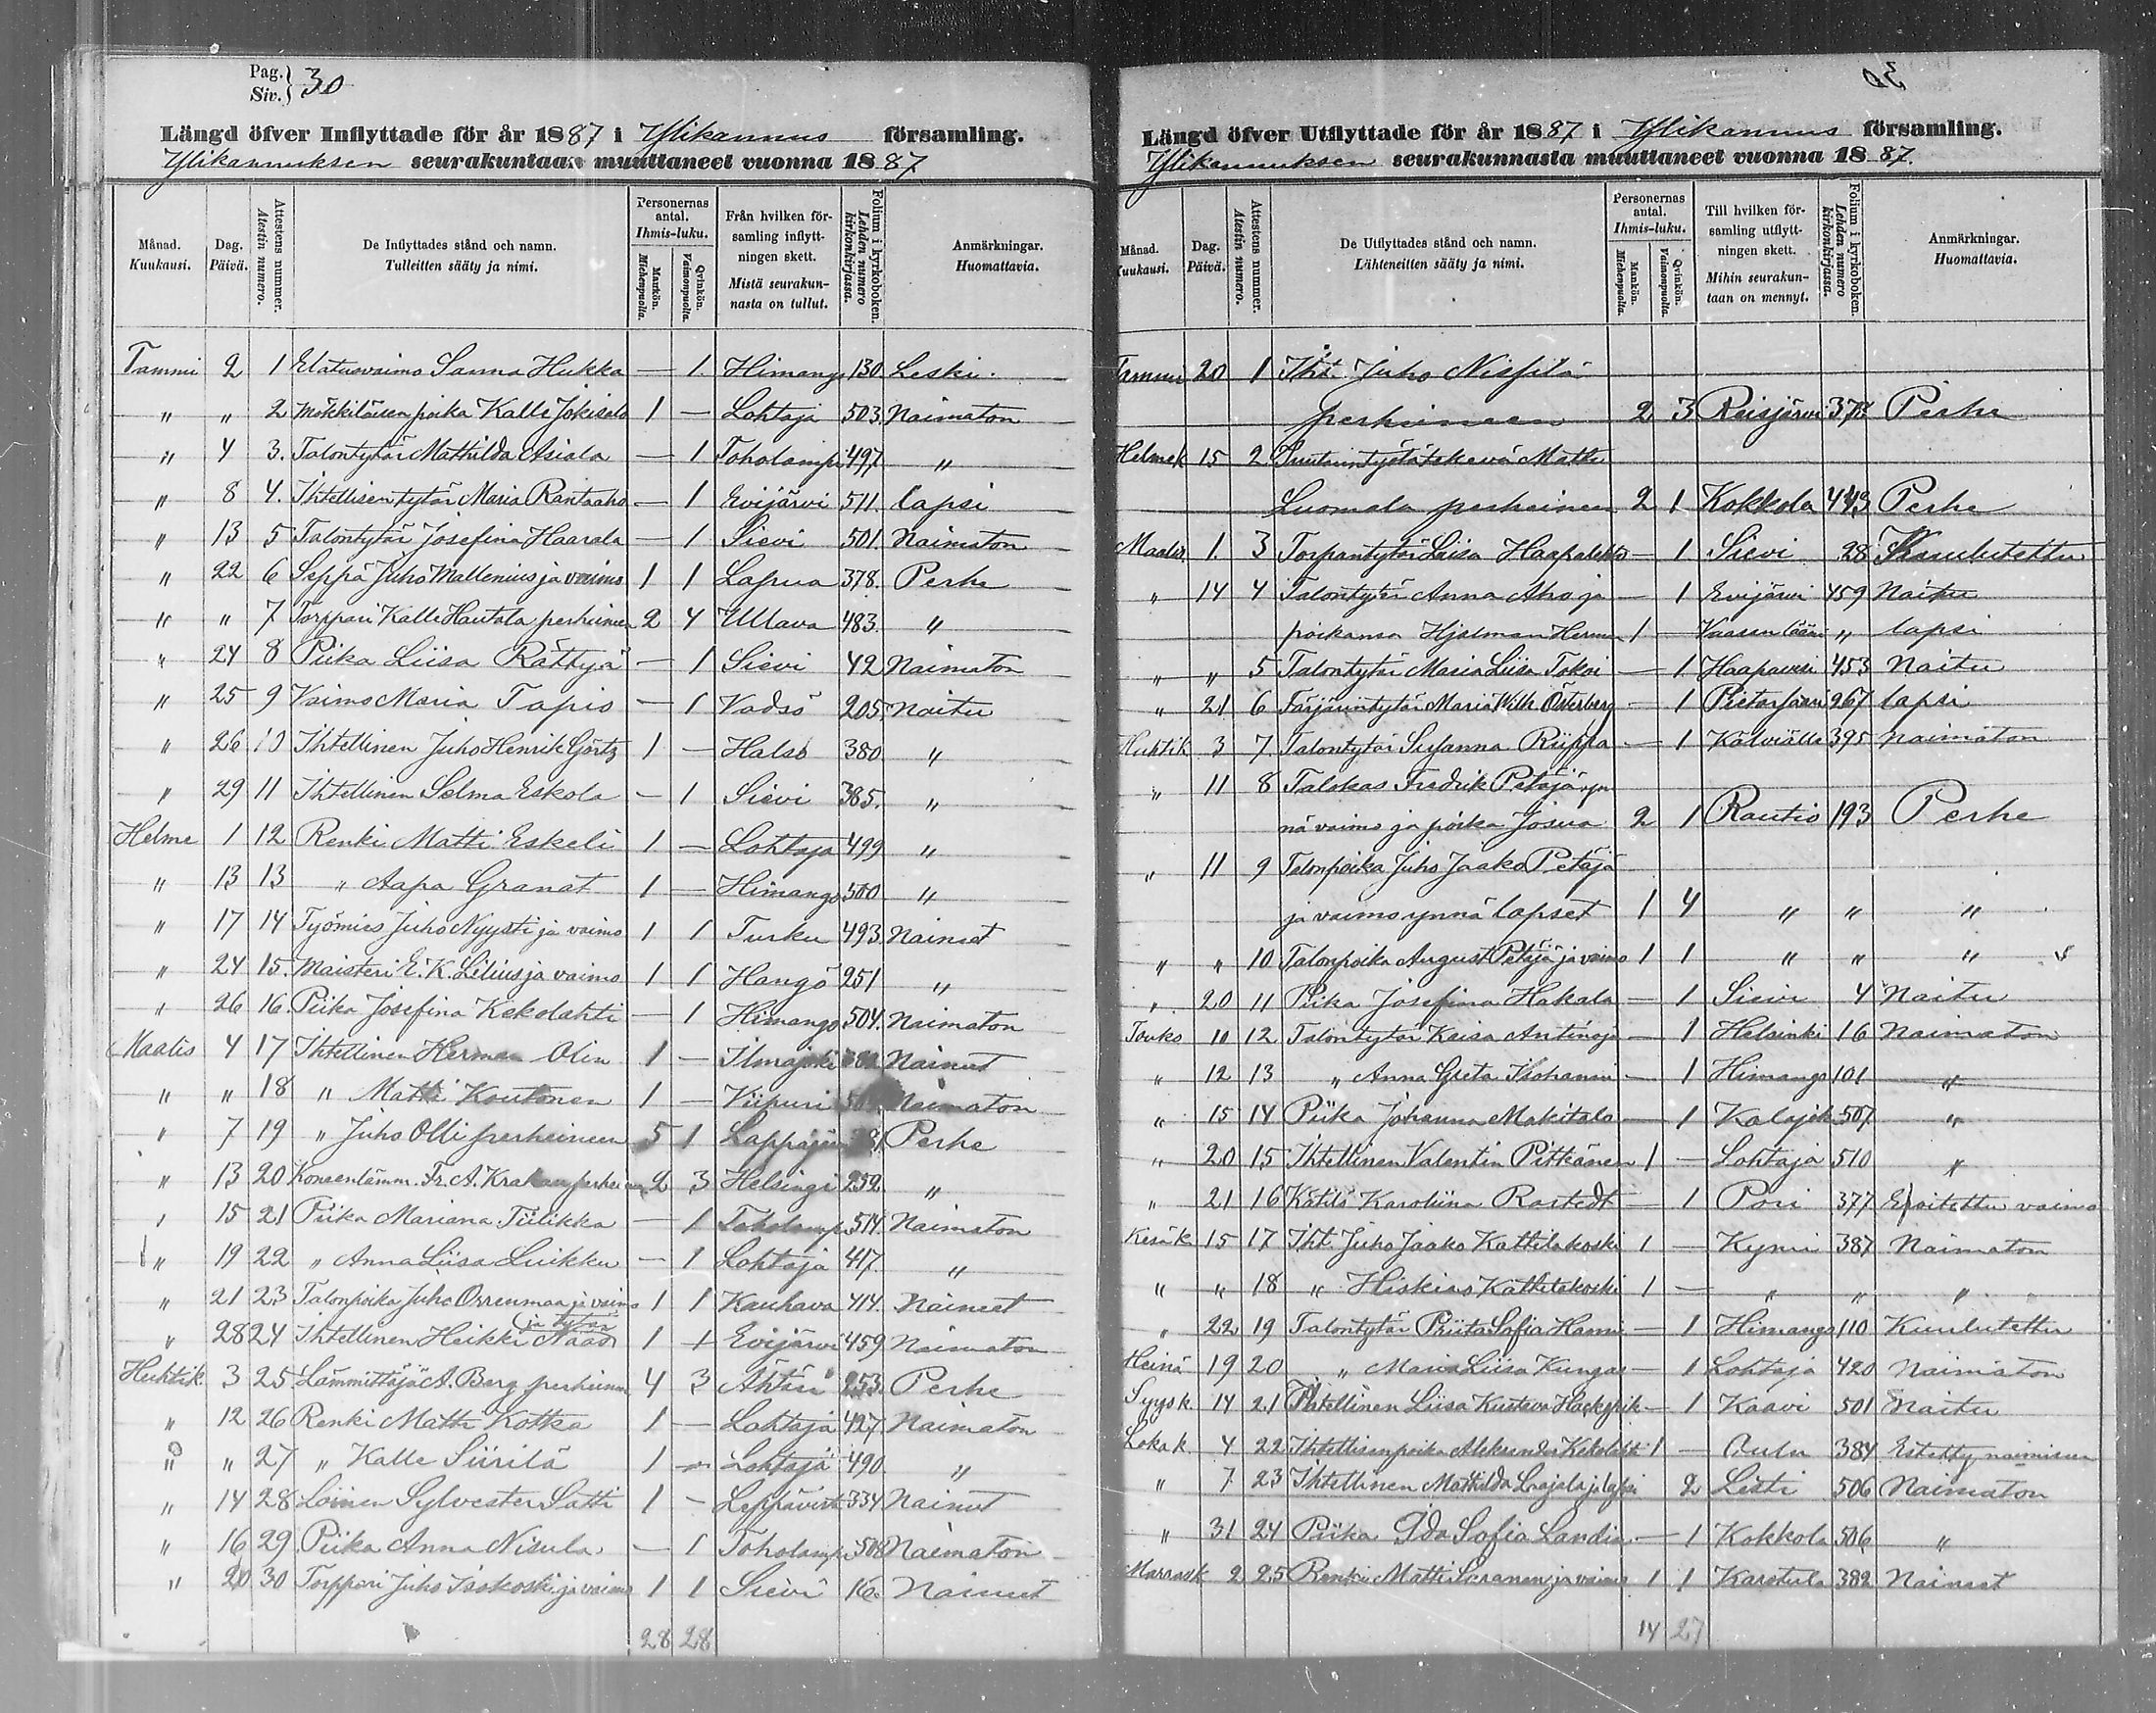 Pag. Siv. 30
Längd öfver Inflyttade för år 1887 i Ylikannus församling.
Ylikannuksen seurakuntaan muuttaneet vuonna 1887
Månad. Kuukausi.
Dag. Päivä.
Attestens nummer. Atestin numero.
De Inflyttades stånd och namn. Tulleitten sääty ja nimi.
Personernas antal. Ihmis-luku.
Mankön. Miehenpuolta.
Qvinkön. Vaimonpuolta.
Från hvilken för-
samling inflytt-
ningen skett.
Mistä seurakun-
nasta on tullut.
Folium i kyrkoboken. Lehden numero kirkonkirjassa.
Anmärkningar. Huomattavia.
Tammi 2 1 Elatusvaimo Sanna Hukka — 1. Himang 130. Leski.
" " 2 Mökkiläisen poika Kalle Jokisalo 1 — Lohtaja 503. Naimaton
" 4 3. Talontytär Mathilda Asiala — 1 Toholampi 497 "
" 8 4. Ihtellisen tytär Maria Rantaaho — 1 Evijärvi 511. lapsi
" 13 5 Talontytär Josefina Haarala — 1 Sievi 501. Naimaton
" 22 6 Seppä Juho Mallenius ja vaimo 1 1 Lapua 378. Perhe
" " 7 Torppari Kalle Hautala perheineen 2 4 Ullava 483. "
" 24 8 Piika Liisa Rättyä — 1 Sievi 42 Naimaton
" 25 9 Vaimo Maria Tapio — 1 Vadsö 205 Naitu
" 26 10 Ihtellinen Juho Henrik Görtz 1 — Halsö 380. "
" 29 11 Ihtellinen Selma Eskola — 1 Sievi 385. "
Helme 1 12 Renki Matti Eskeli 1 — Lohtaja 499 "
" 13 13 " Aapa Granat 1 — Himango 500. "
" 17 14 Työmies Juho Nyysti ja vaimo 1 1 Turku 493. Naineet
" 24 15. Maisteri E. K. Lilius ja vaimo 1 1 Hangö 251 "
" 26 16. Piika Josefina Kekolahti — 1 Himango 504. Naimaton
Maalis 4 17 Ihtellinen Herman Olin 1 — Ilmajoki Nainut
" " 18 " Matti Koutonen 1 — Viipuri Naimaton
" 7 19 " Juho Olli perheineen 5 1 Lappajär Perhe
" 13 20 Fr. A. perheineen 2 3 Helsingi 252. "
" 15 21 Piika Mariana Tiilikka — 1 Toholamp 514. Naimaton
" 19 22 " Anna Liisa Luikku — 1 Lohtaja 417. "
" 21 23 Talonpoika Juho Orrenmaa ja vaimo 1 1 Kauhava 414. Naineet
" 28 24 Ihtellinen Heikki (ja tytär) 1 1 Evijärvi 459 Naimaton
Huhtik 3 25. Lämmittäjä A. Berg perheineen 4 3 Ähtäri 253. Perhe
" 12 26 Renki Matti Kotka 1 — Lohtaja 427 Naimaton
" " 27 " Kalle Siirilä 1 — Lohtaja 490. "
" 14 28 Loinen Sylvester Satti 1 - Leppävirt 334 Nainut
" 16 29 Piika Anna Nisula — 1 Toholampi 508 Naimaton
" 20 30 Torppari Juho Isokoski ja vaimo 1 1 Sievi 16. Naineet
28 28
30
Längd öfver Utflyttade för år 1887 i Ylikannus församling.
Ylikannuksen seurakunnasta muuttaneet vuonna 1887.
Månad. Kuukausi.
Dag. Päivä.
Attestens nummer. Atestin numero.
De Utflyttades stånd och namn. Lähteneitten sääty ja nimi.
Personernas antal. Ihmis-luku.
Mankön. Miehenpuolta.
Qvinkön. Vaimonpuolta.
Till hvilken för-
samling utflytt-
ningen skett.
Mihin seurakun-
taan on mennyt.
Folium i kyrkoboken. Lehden numero kirkonkirjassa.
Anmärkningar. Huomattavia.
Tammi 20 1 Iht. Juho Niskilä
perheineen 2 3 Reisjärvi Perhe
Helmek 15 2 Matti
Luomala perheineen 2 1 Kokkola 443 Perhe
Maalis. 1. 3 Torpantytär Liisa Haapalehto — 1 Sievi 28 Kuulutettu
" 14 4 Talontytär Anna Aho ja — 1 Evijärvi 459 Naitu
poikansa Hjalmar Herman 1 — Vaasan lääni " lapsi
" " 5 Talontytär Maria Liisa Tokoi — 1 Haapavesi 453 Naitu
" 21 6 Färjärintytär Maria Wilh. Österberg — 1 Pietarsaari 267 lapsi
Huhtik 3 7. Talontytär Susanna Riippa — 1 Kälviällä 395 naimaton
" 11 8 Talokas Fredrik Petäjä yn-
nä vaimo ja poika Josua 2 1 Rautio 193 Perhe
" 11 9 Talonpoika Juho Jaako Petäjä
ja vaimo ynnä lapset 1 4 " " "
" " 10 Talonpoika August Petäjä ja vaimo 1 1 " " "
" 20 11 Piika Josefina Hakala — 1 Sievi 4 Naitu
Touko 10 12 Talontytär Kaisa Antinoja — 1 Helsinki 16 Naimaton
" 12 13 " Anna Greta Isohanni — 1 Himango 101 "
" 15 14 Piika Johanna Mäkitalo — 1 Kalajok 507. "
" 20 15 Ihtellinen Valentin Pitkänen 1 — Lohtaja 510 "
" 21 16 Kätilö Karoliina Rostedt — 1 Pori 377 Eroitettu vaimo
Kesäk 15 17 Iht. Juho Jaako Kattilakoski 1 — Kymi 387 Naimaton
" " 18 " Hiskias Kattilakoski 1 — " " "
" 22 19 Talontytär Priita Sofia Hanni — 1 Himango 110 Kuulutettu
Heinä 19 20 " Maria Liisa Kungas — 1 Lohtaja 420 Naimaton
Syysk. 14 21 Ihtellinen Liisa Kustava — 1 Kaavi 501 Naitu
Lokak. 4 22 Ihtellisenpoika Aleksander Kekolahti 1 — Oulu 384 Estetty naimisen
" 7 23 Ihtellinen Mathilda Lorajala ja lapsi 2 Lesti 506 Naimaton
" 31 24 Piika Ida Sofia Landin — 1 Kokkola 506 "
Marrask 2 25 Renki Matti Saranen ja vaimo 1 1 Karstula 382 Naineet
14 27